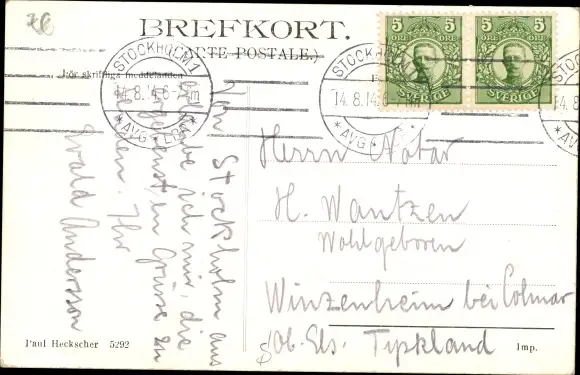 76
BREFKORT.
(CARTE POSTALE.)
För skriftliga meddelanden
STOCKHOLM 1
14.8.14.6-7 m
* AVG. LBR *
STOCKHOLM 1
14.8.14.6-7 m
* AVG
* AV
5 5
ÖRE ÖRE
SVERIGE
5 5
ÖRE ÖRE
SVERIGE
Von Stockholm aus
erlaube ich mir, die
ergebensten Grüsse zu
senden. Ihr
Ewald Andersson
Herrn Notar
H. Wantzen
Wohlgeboren
Winzenheim bei Colmar
Ob. Els. Tyskland
Paul Heckscher 5292
Imp.